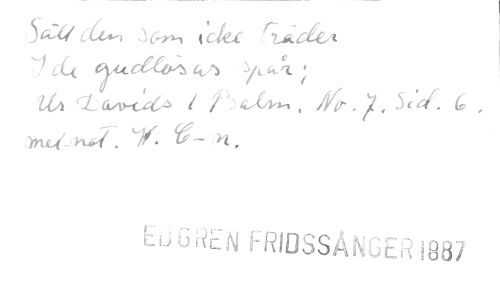 Säll den som icke träder
I de gudlösas spår;
Ur Davids 1 Psalm. No. 7. Sid. 6.
mel. not. W. C-n.
EDGREN FRIDSSÅNGER 1887